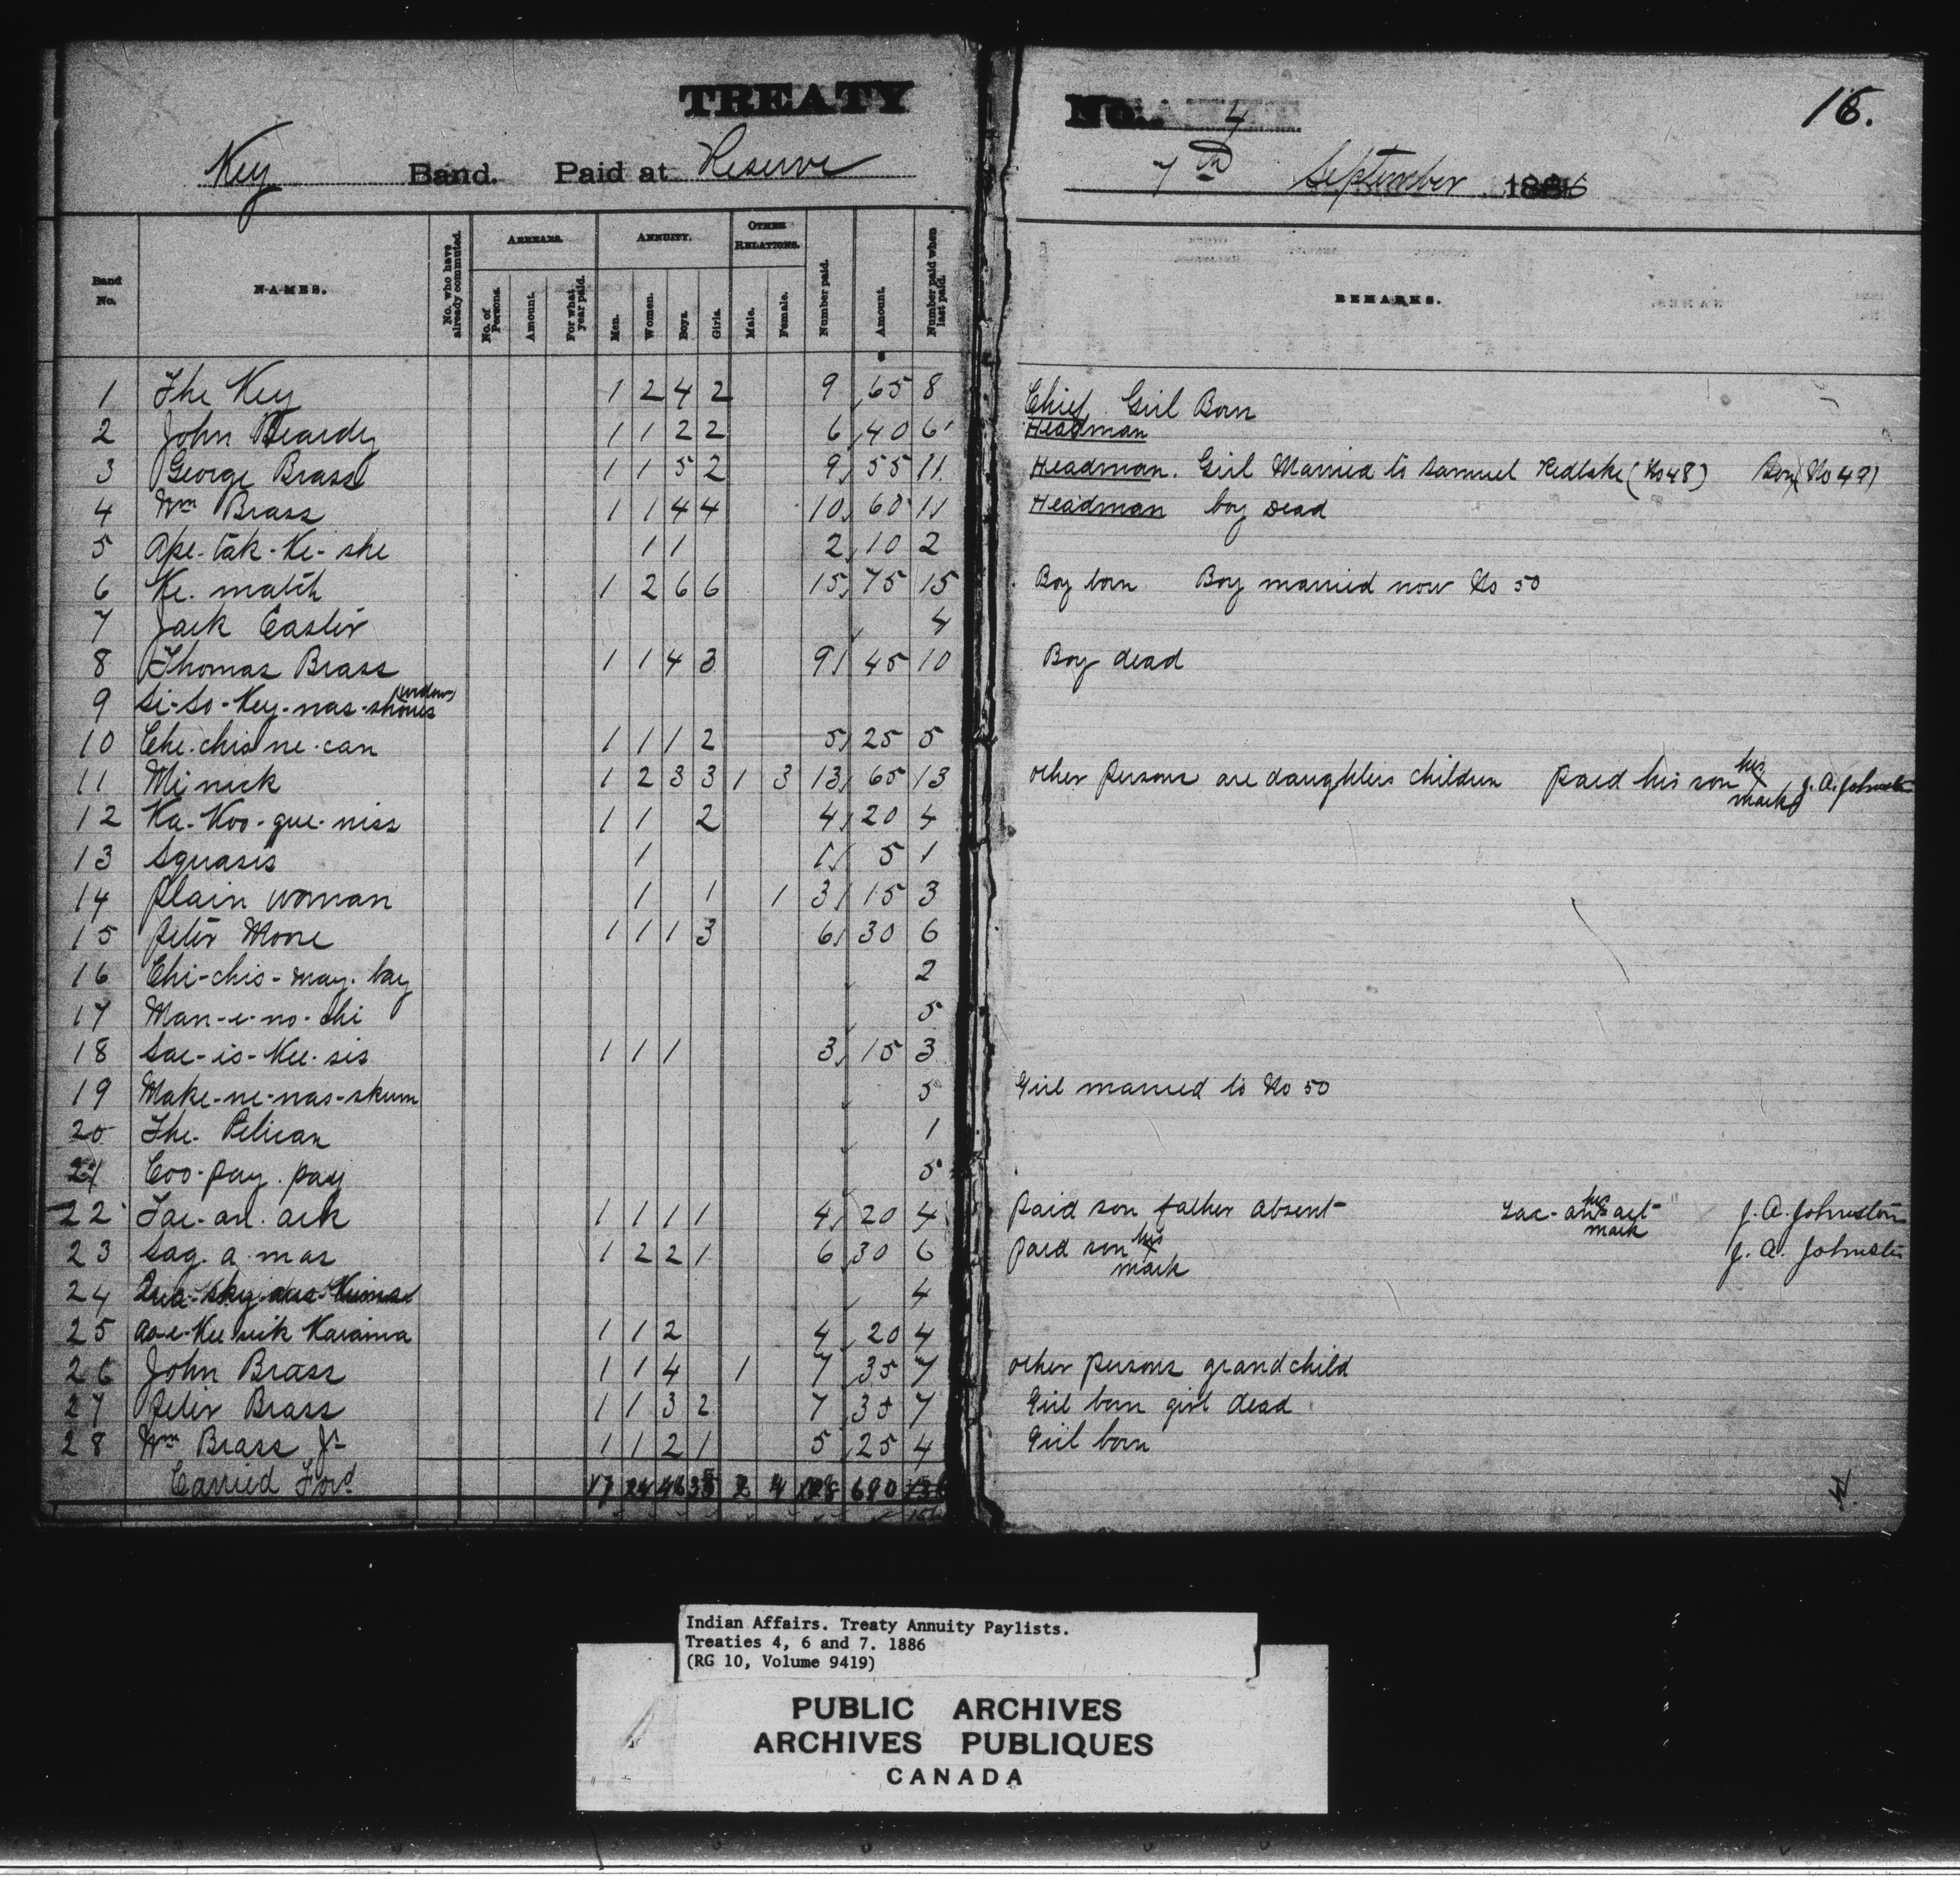 TREATY No. 4 16.
Key Band. Paid at Reserve 7th September 1886
Band No. NAMES. No. who have already commuted. ARREARS. No. of Persons. Amount. For what year paid. ANNUITY. Men. Women. Boys. Girls. OTHER RELATIONS. Male. Female. Number paid. Amount. Number paid when last paid. REMARKS.
1 The Key 1 2 4 2 9 65 8 Chief Girl Born
2 John Beardy 1 1 2 2 6 40 6 Headman
3 George Brass 1 1 5 2 9 55 11 Headman. Girl Married to Samuel Redlake (No 48) Boy (No 49)
4 Wm Brass 1 1 4 4 10 60 11 Headman boy dead
5 Ape-tak-Ke-she 1 1 2 10 2
6 Ke. match 1 2 6 6 15 75 15 Boy born Boy married now No 50
7 Jack Easter 4
8 Thomas Brass 1 1 4 3 9 45 10 Boy dead
9 Si-So-Key-nas-shones
10 Che-chis ne-can 1 1 1 2 5 25 5
11 Mi nick 1 2 3 3 1 3 13 65 13 other persons are daughters children paid his son his X mark J. A. Johnston
12 Ka-Koo-que-niss 1 1 2 4 20 4
13 Squasis 1 1 5 1
14 Plain woman 1 1 1 3 15 3
15 Peter Moore 1 1 1 3 6 30 6
16 Chi-chis-may-bay 2
17 Man-e-no-chi 5
18 Sae-is-Kee-sis 1 1 1 3 15 3
19 Make-ne-nas-skum 5 Girl married to No 50
20 The Pelican 1
21 Coo-pay-pay 5
22 Tae-an-ack 1 1 1 1 4 20 4 paid son father absent his X mark J. A. Johnston
23 Sag. a mas 1 2 2 1 6 30 6 paid son his X mark J. A. Johnston
24 4
25 1 1 2 4 20 4
26 John Brass 1 1 4 1 7 35 7 other persons grandchild
27 Peter Brass 1 1 3 2 7 35 7 Girl born girl dead
28 Wm Brass Jr 1 1 2 1 5 25 4 Girl born
Carried Ford 17 24 46 35 2 4 128 690
Indian Affairs. Treaty Annuity Paylists.
Treaties 4, 6 and 7. 1886
(RG 10, Volume 9419)
PUBLIC ARCHIVES
ARCHIVES PUBLIQUES
CANADA